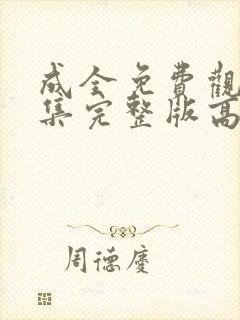 成全免費觀
集完整版高
周德慶